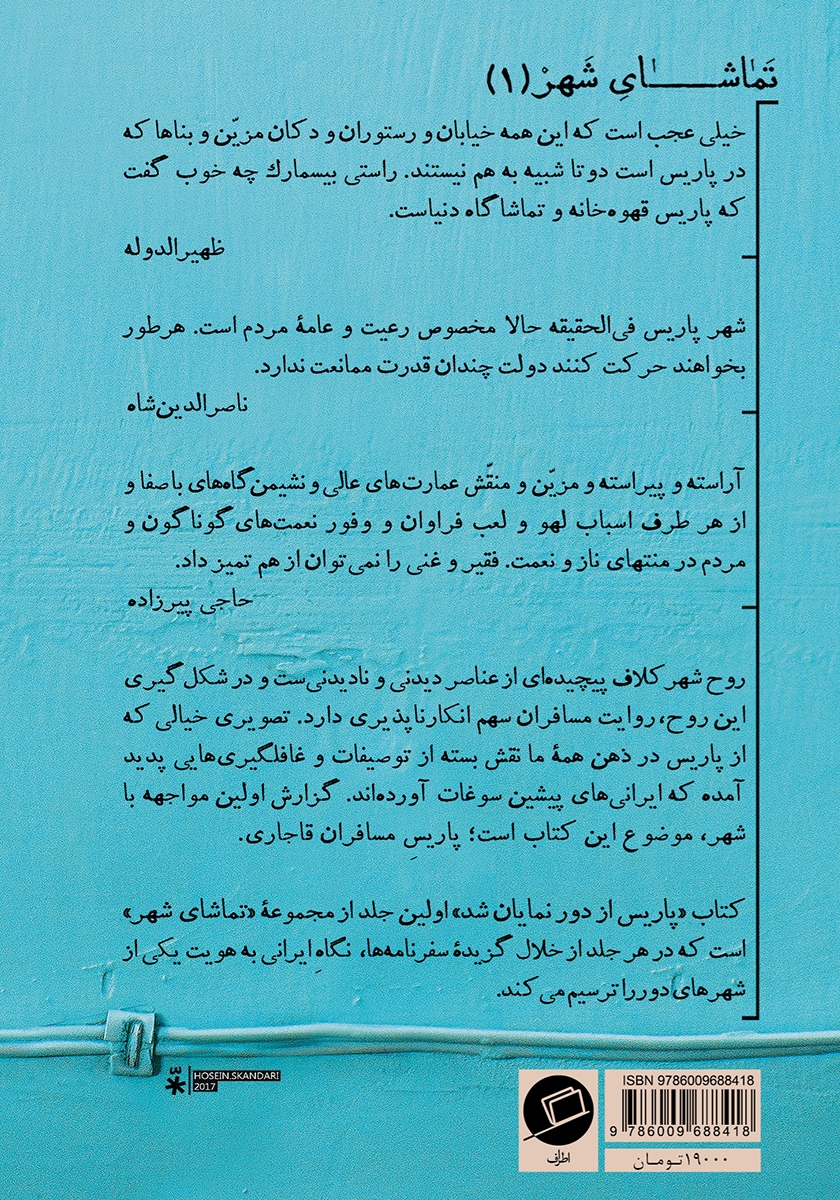 تَماشـــــای شَهرْ (۱)
خیلی عجب است که این همه خیابان و رستوران و دکان مزیّن و بناها که
در پاریس است دو تا شبیه به هم نیستند. راستی بیسمارك چه خوب گفت
که پاریس قهوه‌خانه و تماشاگاه دنیاست.
ظهیرالدوله
شهر پاریس فی‌الحقیقه حالا مخصوص رعیت و عامهٔ مردم است. هرطور
بخواهند حرکت کنند دولت چندان قدرت ممانعت ندارد.
ناصرالدین‌شاه
آراسته و پیراسته و مزیّن و منقّش عمارت‌های عالی و نشیمن‌گاه‌های باصفا و
از هر طرف اسباب لهو و لعب فراوان و وفور نعمت‌های گوناگون و
مردم در منتهای ناز و نعمت. فقیر و غنی را نمی‌توان از هم تمیز داد.
حاجی پیرزاده
روح شهر کلاف پیچیده‌ای از عناصر دیدنی و نادیدنی‌ست و در شکل گیری
این روح، روایت مسافران سهم انکارناپذیری دارد. تصویری خیالی که
از پاریس در ذهن همهٔ ما نقش بسته از توصیفات و غافلگیری‌هایی پدید
آمده که ایرانی‌های پیشین سوغات آورده‌اند. گزارش اولین مواجهه با
شهر، موضوع این کتاب است؛ پاریسِ مسافران قاجاری.
کتاب «پاریس از دور نمایان شد» اولین جلد از مجموعهٔ «تماشای شهر»
است که در هر جلد از خلال گزیدهٔ سفرنامه‌ها، نگاهِ ایرانی به هویت یکی از
شهرهای دور را ترسیم می‌کند.
HOSEIN.SKANDARI
2017
اطراف
ISBN 9786009688418
9 786009 688418
۱۹۰۰۰ تومـان